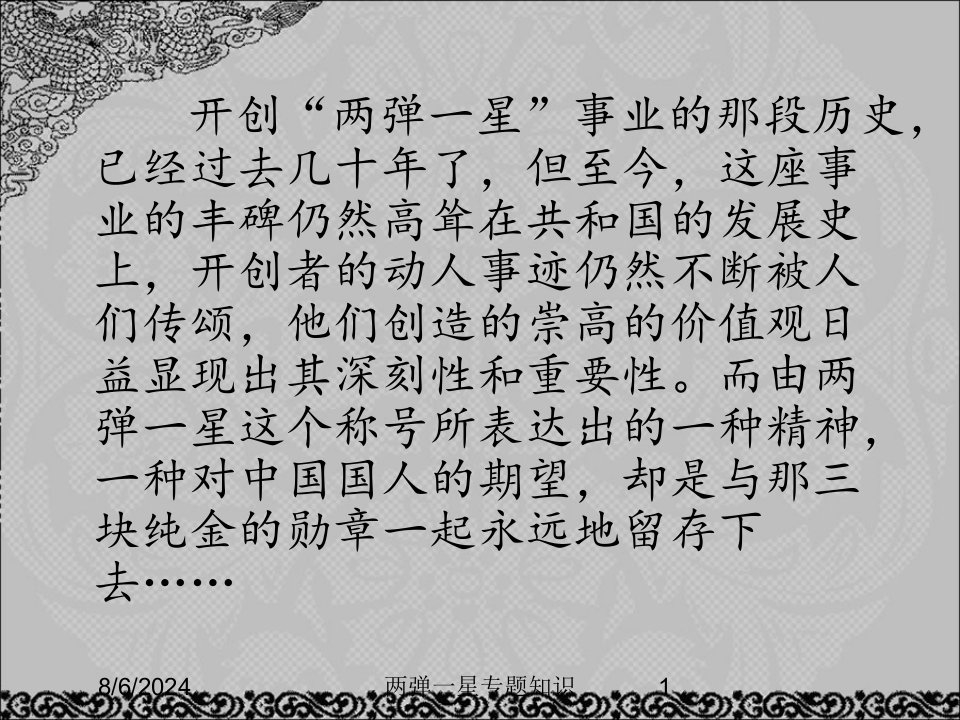 开创“两弹一星”事业的那段历史，
已经过去几十年了，但至今，这座事
业的丰碑仍然高耸在共和国的发展史
上，开创者的动人事迹仍然不断被人
们传颂，他们创造的崇高的价值观日
益显现出其深刻性和重要性。而由两
弹一星这个称号所表达出的一种精神，
一种对中国国人的期望，却是与那三
块纯金的勋章一起永远地留存下
去……
8/6/2024 两弹一星专题知识 1